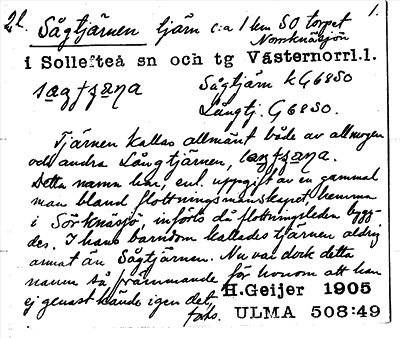 2l. Sågtjärnen tjärn c:a 1 km SO torpet 1.
Norrknäsjön
i Sollefteå sn och tg Västernorrl.l.
Sågtjärn kG6850
Långtj. G6850.
Tjärnen kallas allmänt både av allmogen
och andra Långtjärnen,
Detta namn har, enl. uppgift av en gammal
man bland flottningsmanskapet, hemma
i Sörknäsjö, införts då flottningsleden bygg-
des. I hans barndom kallades tjärnen aldrig
annat än Sågtjärnen. Nu var dock detta
namn så främmande för honom att han
ej genast kände igen det.
H.Geijer 1905
ULMA 508:49